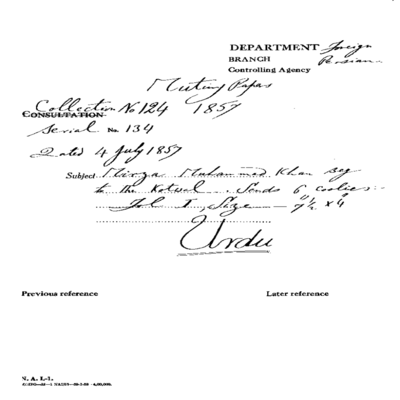 DEPARTMENT Foreign
BRANCH Persian
Controlling Agency
Mutiny Papers
Collection No 124 1857
CONSULTATION
Serial No. 134
Dated 4 July 1857
Subject Mirza Muhammad Khan
to the Kotwal. Sends 6 coolies:-
Fol I, Size — 7½" x 4"
Urdu
Previous reference
Later reference
N. A. I.-1.